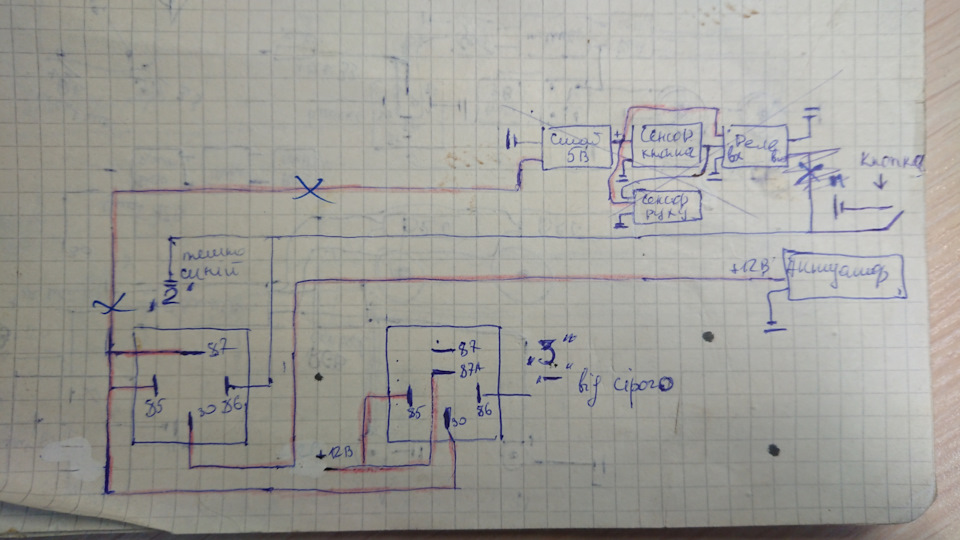 5В
+
Сенсор
кнопка
Реле
Вх
Кнопка
Сенсор
руху
темно
синій
"2"
+12В
Актуатор
87
85
30
86
87
87А
85
30
86
+12В
"3"
"–" від сірого